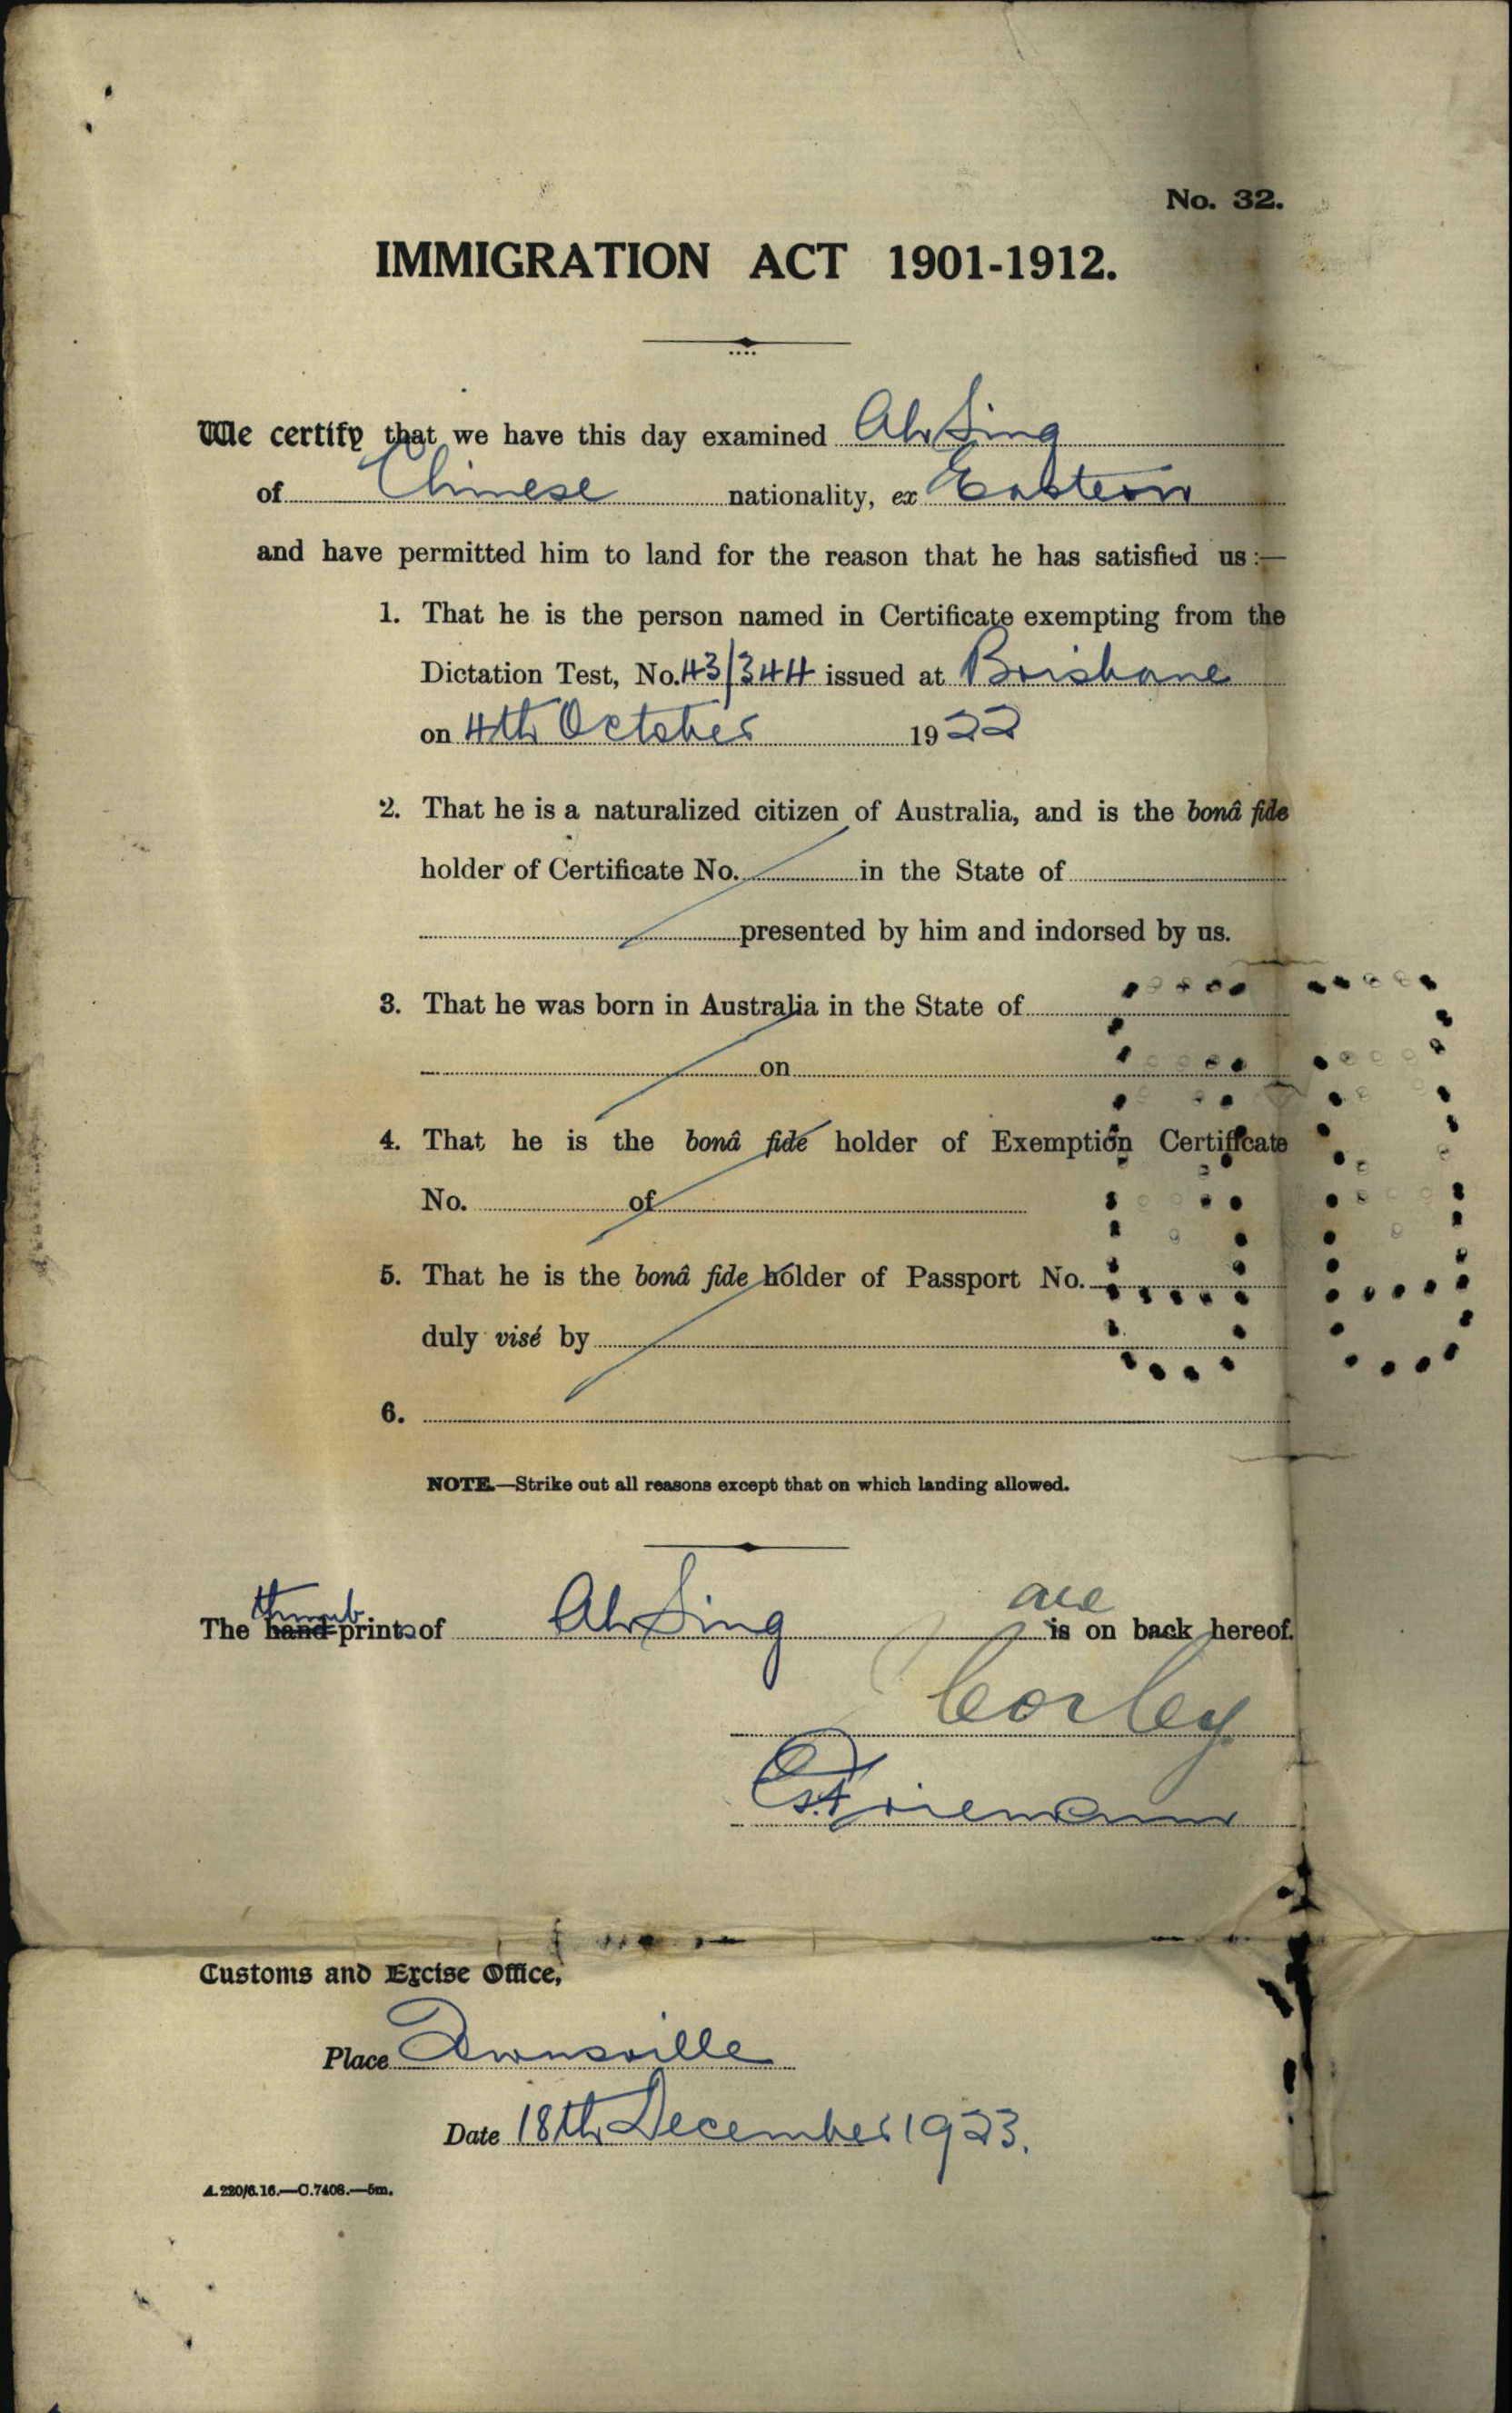 No. 32.
IMMIGRATION ACT 1901-1912.
We certify that we have this day examined Ah Sing
of Chinese nationality, ex Eastern
and have permitted him to land for the reason that he has satisfied us :—
1. That he is the person named in Certificate exempting from the
Dictation Test, No. 43/344 issued at Brisbane
on 4th October 1922
2. That he is a naturalized citizen of Australia, and is the bonâ fide
holder of Certificate No. in the State of
presented by him and indorsed by us.
3. That he was born in Australia in the State of
on
4. That he is the bonâ fide holder of Exemption Certificate
No. of
5. That he is the bonâ fide holder of Passport No.
duly visé by
6.
NOTE.—Strike out all reasons except that on which landing allowed.
thumb are
The hand-prints of Ah Sing is on back hereof.
Corley
Customs and Excise Office,
Place Townsville
Date 18th December 1923.
A.220/6.16.—C.7408.—5m.